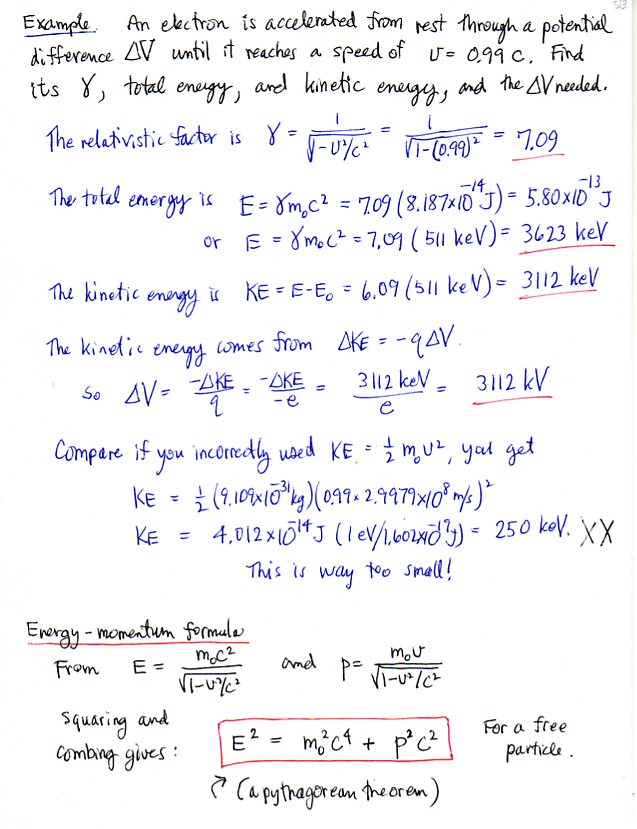 513
Example. An electron is accelerated from rest through a potential
difference ΔV until it reaches a speed of υ = 0.99 c. Find
its γ, total energy, and kinetic energy, and the ΔV needed.
The relativistic factor is γ = 1/√(1-υ²/c²) = 1/√(1-(0.99)²) = 7.09
The total energy is E = γm₀c² = 7.09 (8.187×10⁻¹⁴ J) = 5.80×10⁻¹³ J
or E = γm₀c² = 7.09 (511 keV) = 3623 keV
The kinetic energy is KE = E-E₀ = 6.09 (511 keV) = 3112 keV
The kinetic energy comes from ΔKE = -qΔV.
so ΔV = -ΔKE/q = -ΔKE/-e = 3112 keV/e = 3112 kV
Compare if you incorrectly used KE = ½ m₀υ², you get
KE = ½ (9.109×10⁻³¹ kg)(0.99 × 2.9979×10⁸ m/s)²
KE = 4.012×10⁻¹⁴ J (1 eV/1.602×10⁻¹⁹ J) = 250 keV. XX
This is way too small!
Energy-momentum formula
From E = m₀c²/√(1-υ²/c²) and p = m₀υ/√(1-υ²/c²)
squaring and
combing gives: E² = m₀²c⁴ + p²c² For a free
particle.
(a pythagorean theorem)